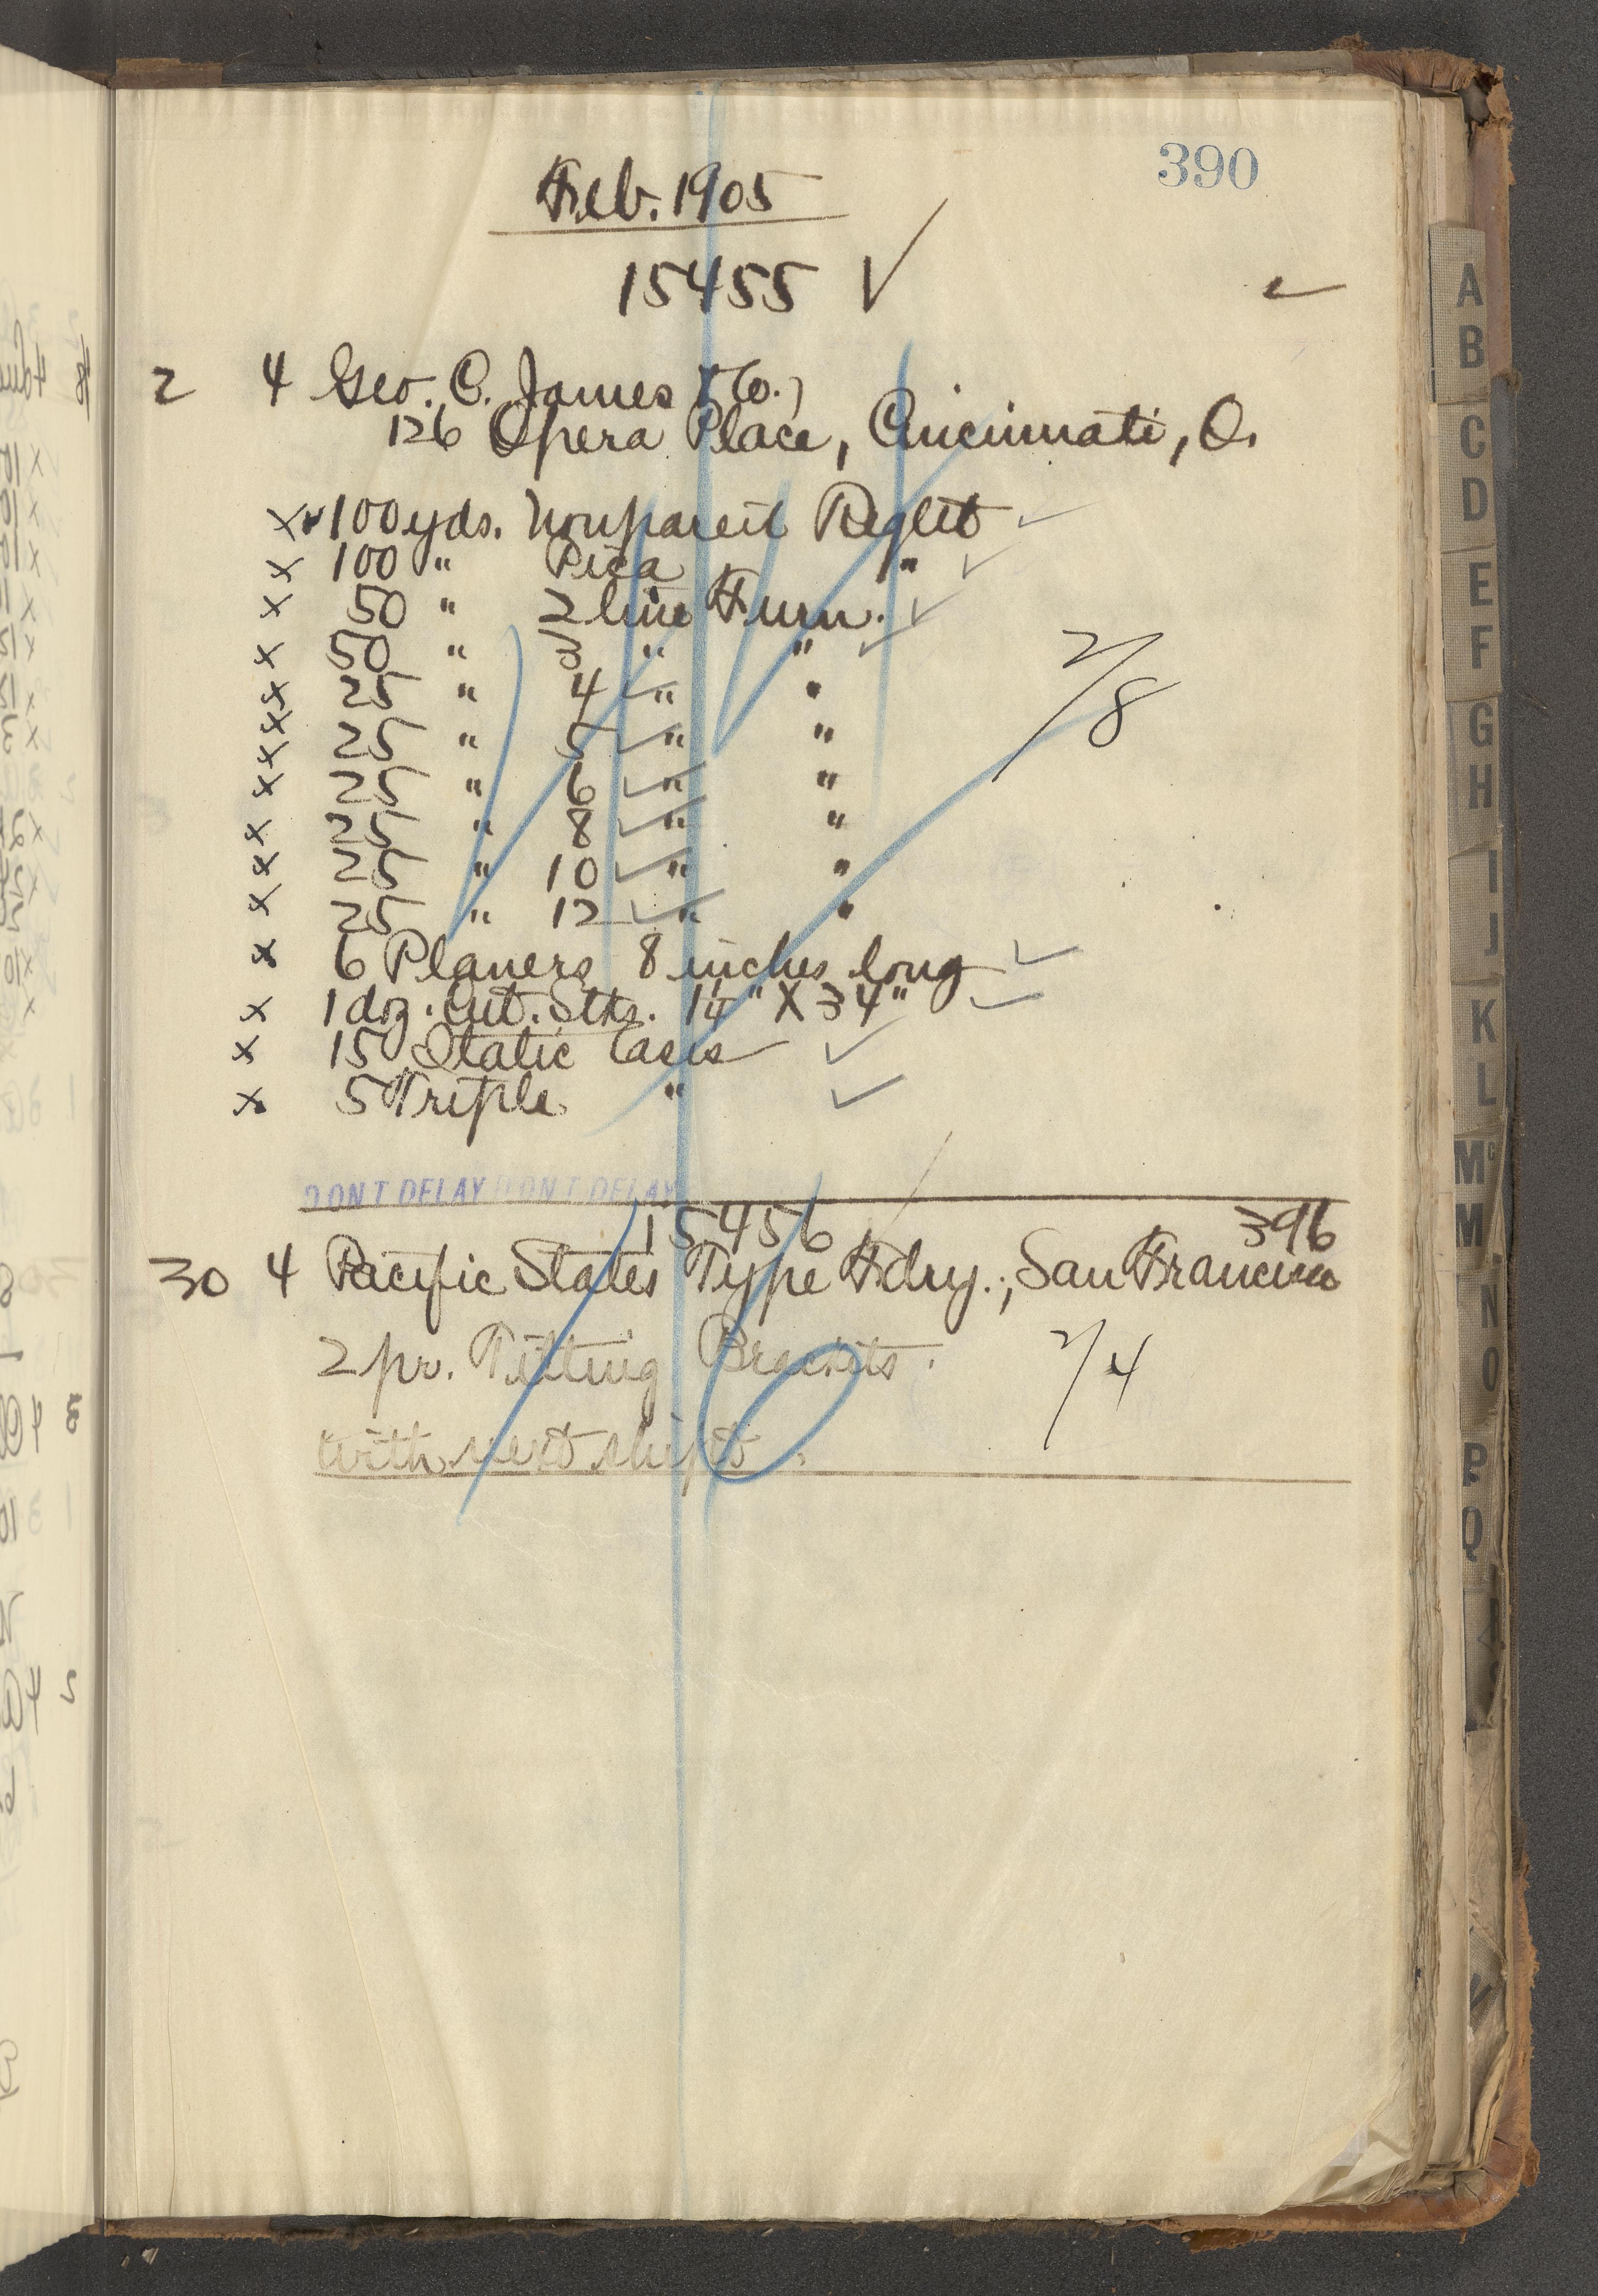 390
Feb. 1905
15455 ✓
2 4 Geo. C. James & Co.,
126 Opera Place, Cincinnati, O.
x 100 yds. Nonpareil Reglet ✓
x 100 " Pica " ✓
x 50 " 2 line Furn. ✓
x 50 " 3 " " ✓
x 25 " 4 ✓ " "
x 25 " 5 ✓ " "
x 25 " 6 ✓ " "
x 25 " 8 ✓ " "
x 25 " 10 ✓ " "
x 25 " 12 ✓ " "
2/8
x 6 Planers 8 inches long ✓
x 1 doz. Cut. Stks. 1¼" X 34" ✓
x 15 Italic Cases ✓
x 5 Triple " ✓
DONT DELAY DONT DELAY
15456 396
30 4 Pacific States Type Fdry.; San Francisco
2 pr. Tilting Brackets.
2/4
with next shipt.
A
B
C
D
E
F
G
H
I
J
K
L
Mc
M
N
O
P
Q